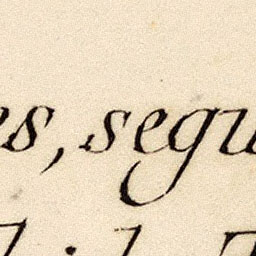 es, segu